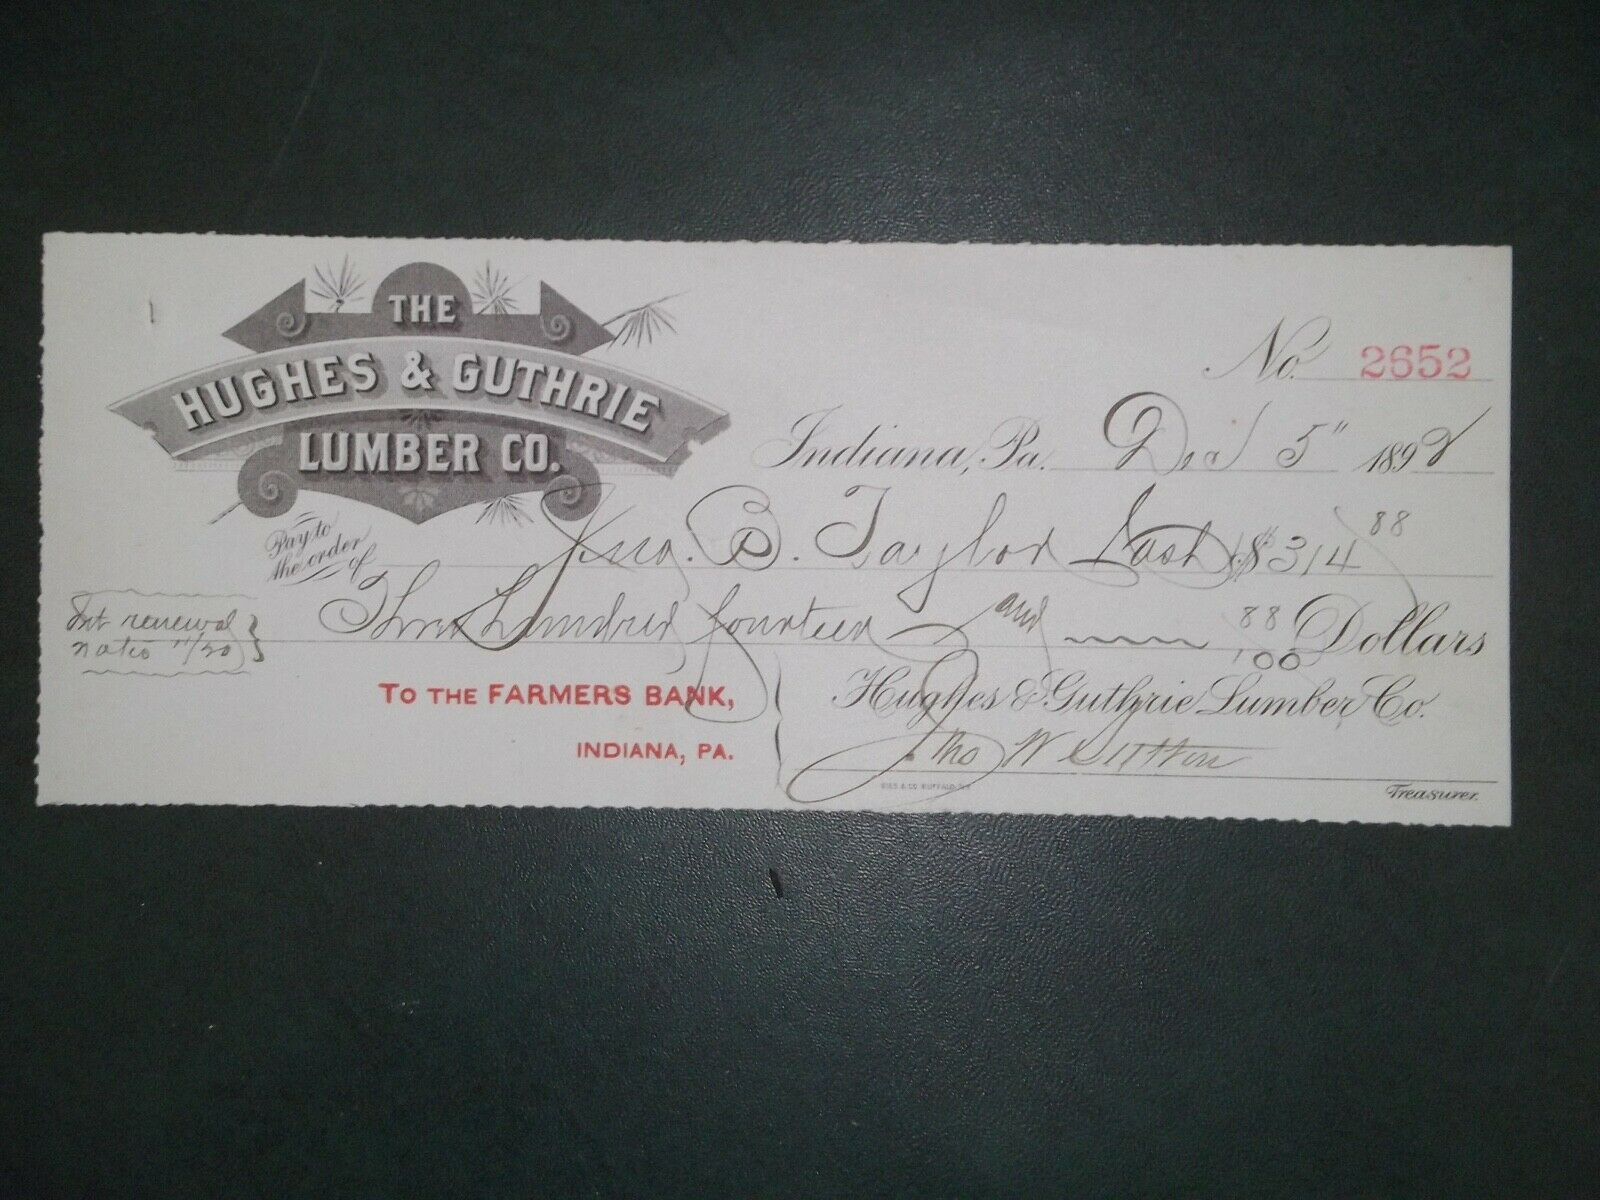 THE
HUGHES & GUTHRIE
LUMBER CO.
No. 2652
Indiana, Pa. Dec 5" 1892
Pay to
the order
of
Jno. B. Taylor Cash $314 88
Int renewal
notes 11/20
Three Hundred fourteen and 88/100 Dollars
TO THE FARMERS BANK,
INDIANA, PA.
Hughes & Guthrie Lumber Co.
Tho W Sutton
Treasurer.
GIES & CO. BUFFALO, N.Y.